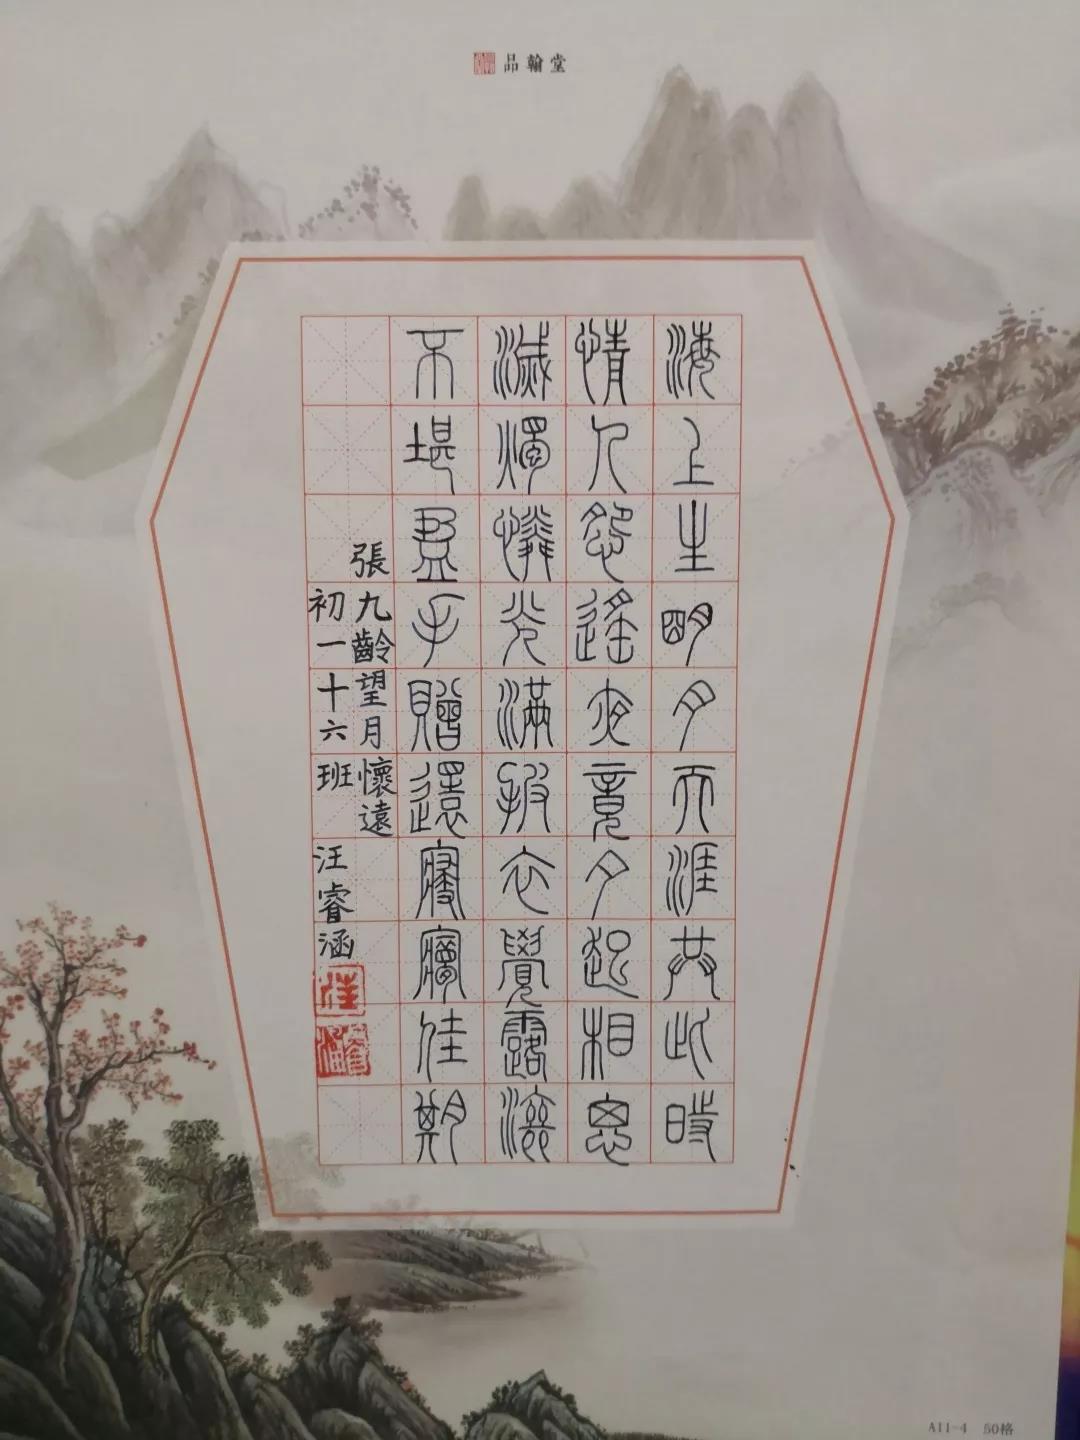 品翰堂
海上生明月天涯共此時
情人怨遙夜竟夕起相思
滅燭憐光滿披衣覺露滋
不堪盈手贈還寢夢佳期
張九齡望月懷遠
初一十六班 汪睿涵
汪
睿涵
A11-4 50格